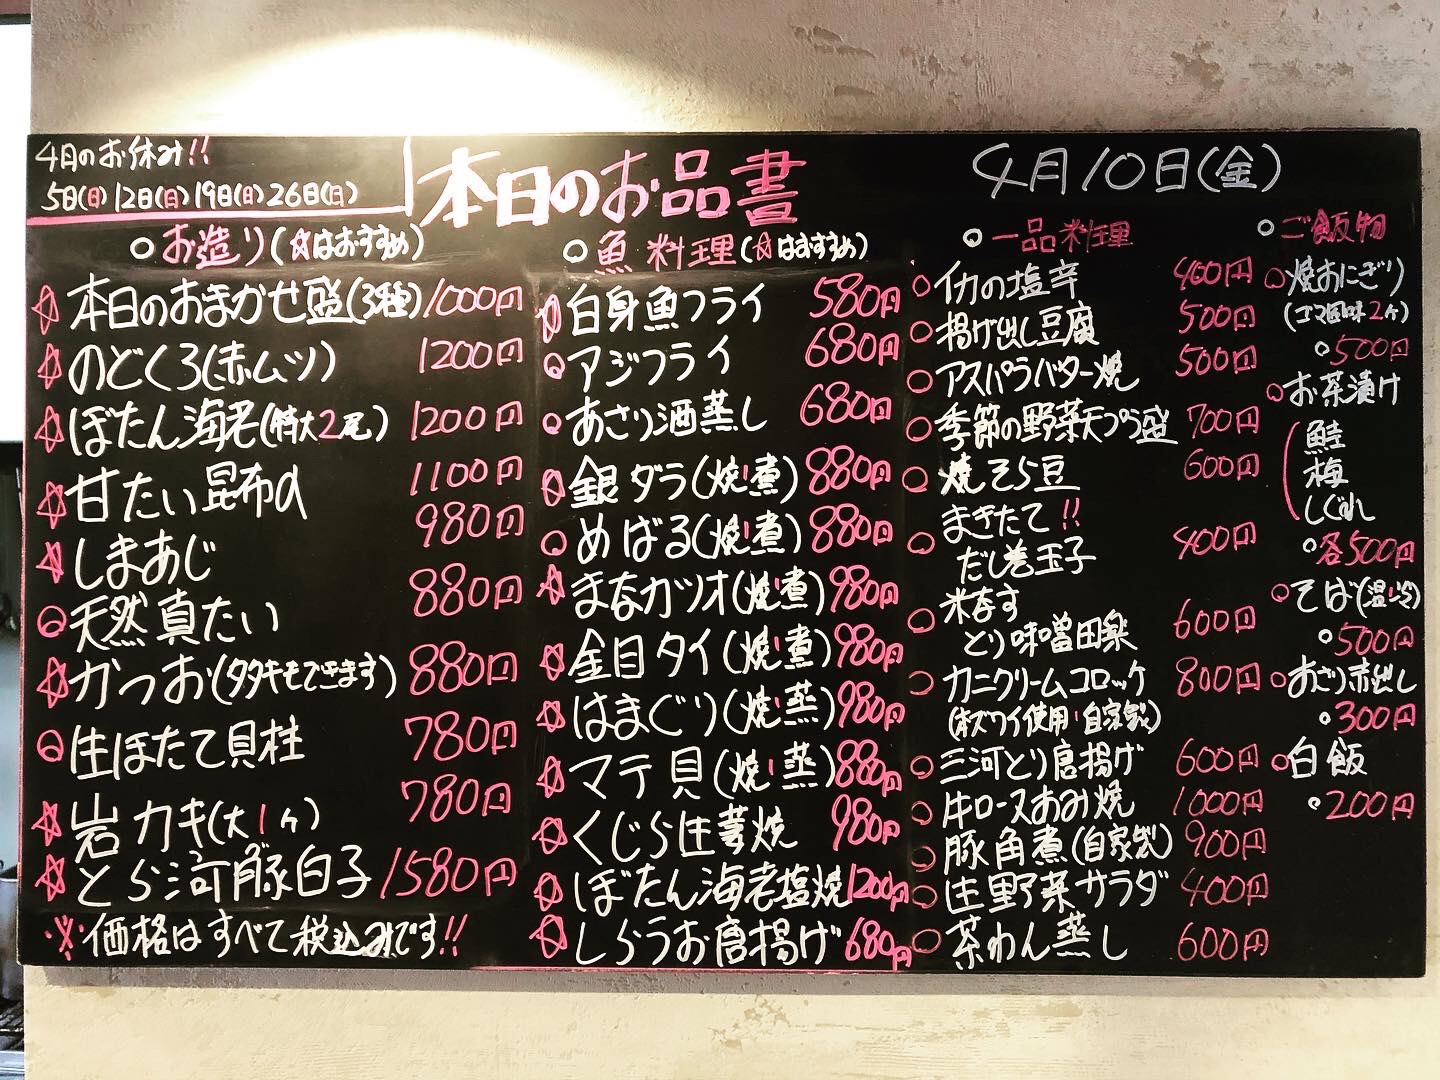 4月のお休み!!
5日(日)12日(日)19日(日)26日(日)
本日のお品書
4月10日(金)
○お造り(☆はおすすめ)
☆本日のおまかせ盛(3種)1000円
☆のどくろ(赤ムツ) 1200円
☆ぼたん海老(特大2尾) 1200円
☆甘たい昆布〆 1100円
☆しまあじ 980円
○天然真たい 880円
☆かつお(タタキもできます) 880円
○生ほたて貝柱 780円
☆岩カキ(大1ヶ) 780円
☆とら河豚白子 1580円
※価格はすべて税込みです!!
○魚料理(☆はおすすめ)
☆白身魚フライ 580円
○アジフライ 680円
○あさり酒蒸し 680円
☆銀ダラ(焼・煮) 880円
○めばる(焼・煮) 880円
☆まなガツオ(焼・煮) 980円
☆金目タイ(焼・煮) 980円
☆はまぐり(焼・蒸) 980円
☆マテ貝(焼・蒸) 880円
☆くじら生姜焼 980円
☆ぼたん海老塩焼 1200円
☆しらうお唐揚げ 680円
○一品料理
○イカの塩辛 400円
○揚げ出し豆腐 500円
○アスパラバター焼 500円
○季節の野菜天プラ盛 700円
○焼そら豆 600円
○まきたて!!
だし巻玉子 400円
○米なす
とり味噌田楽 600円
○カニクリームコロッケ 800円
(本ズワイ使用・自家製)
○三河とり唐揚げ 600円
○牛ロースあみ焼 1000円
○豚角煮(自家製) 900円
○生野菜サラダ 400円
○茶わん蒸し 600円
○ご飯物
○焼おにぎり
(ゴマ風味2ヶ)
○500円
○お茶漬け
鮭
梅
しぐれ
○各500円
○そば(温・冷)
○500円
○あさり赤出し
○300円
○白飯
○200円